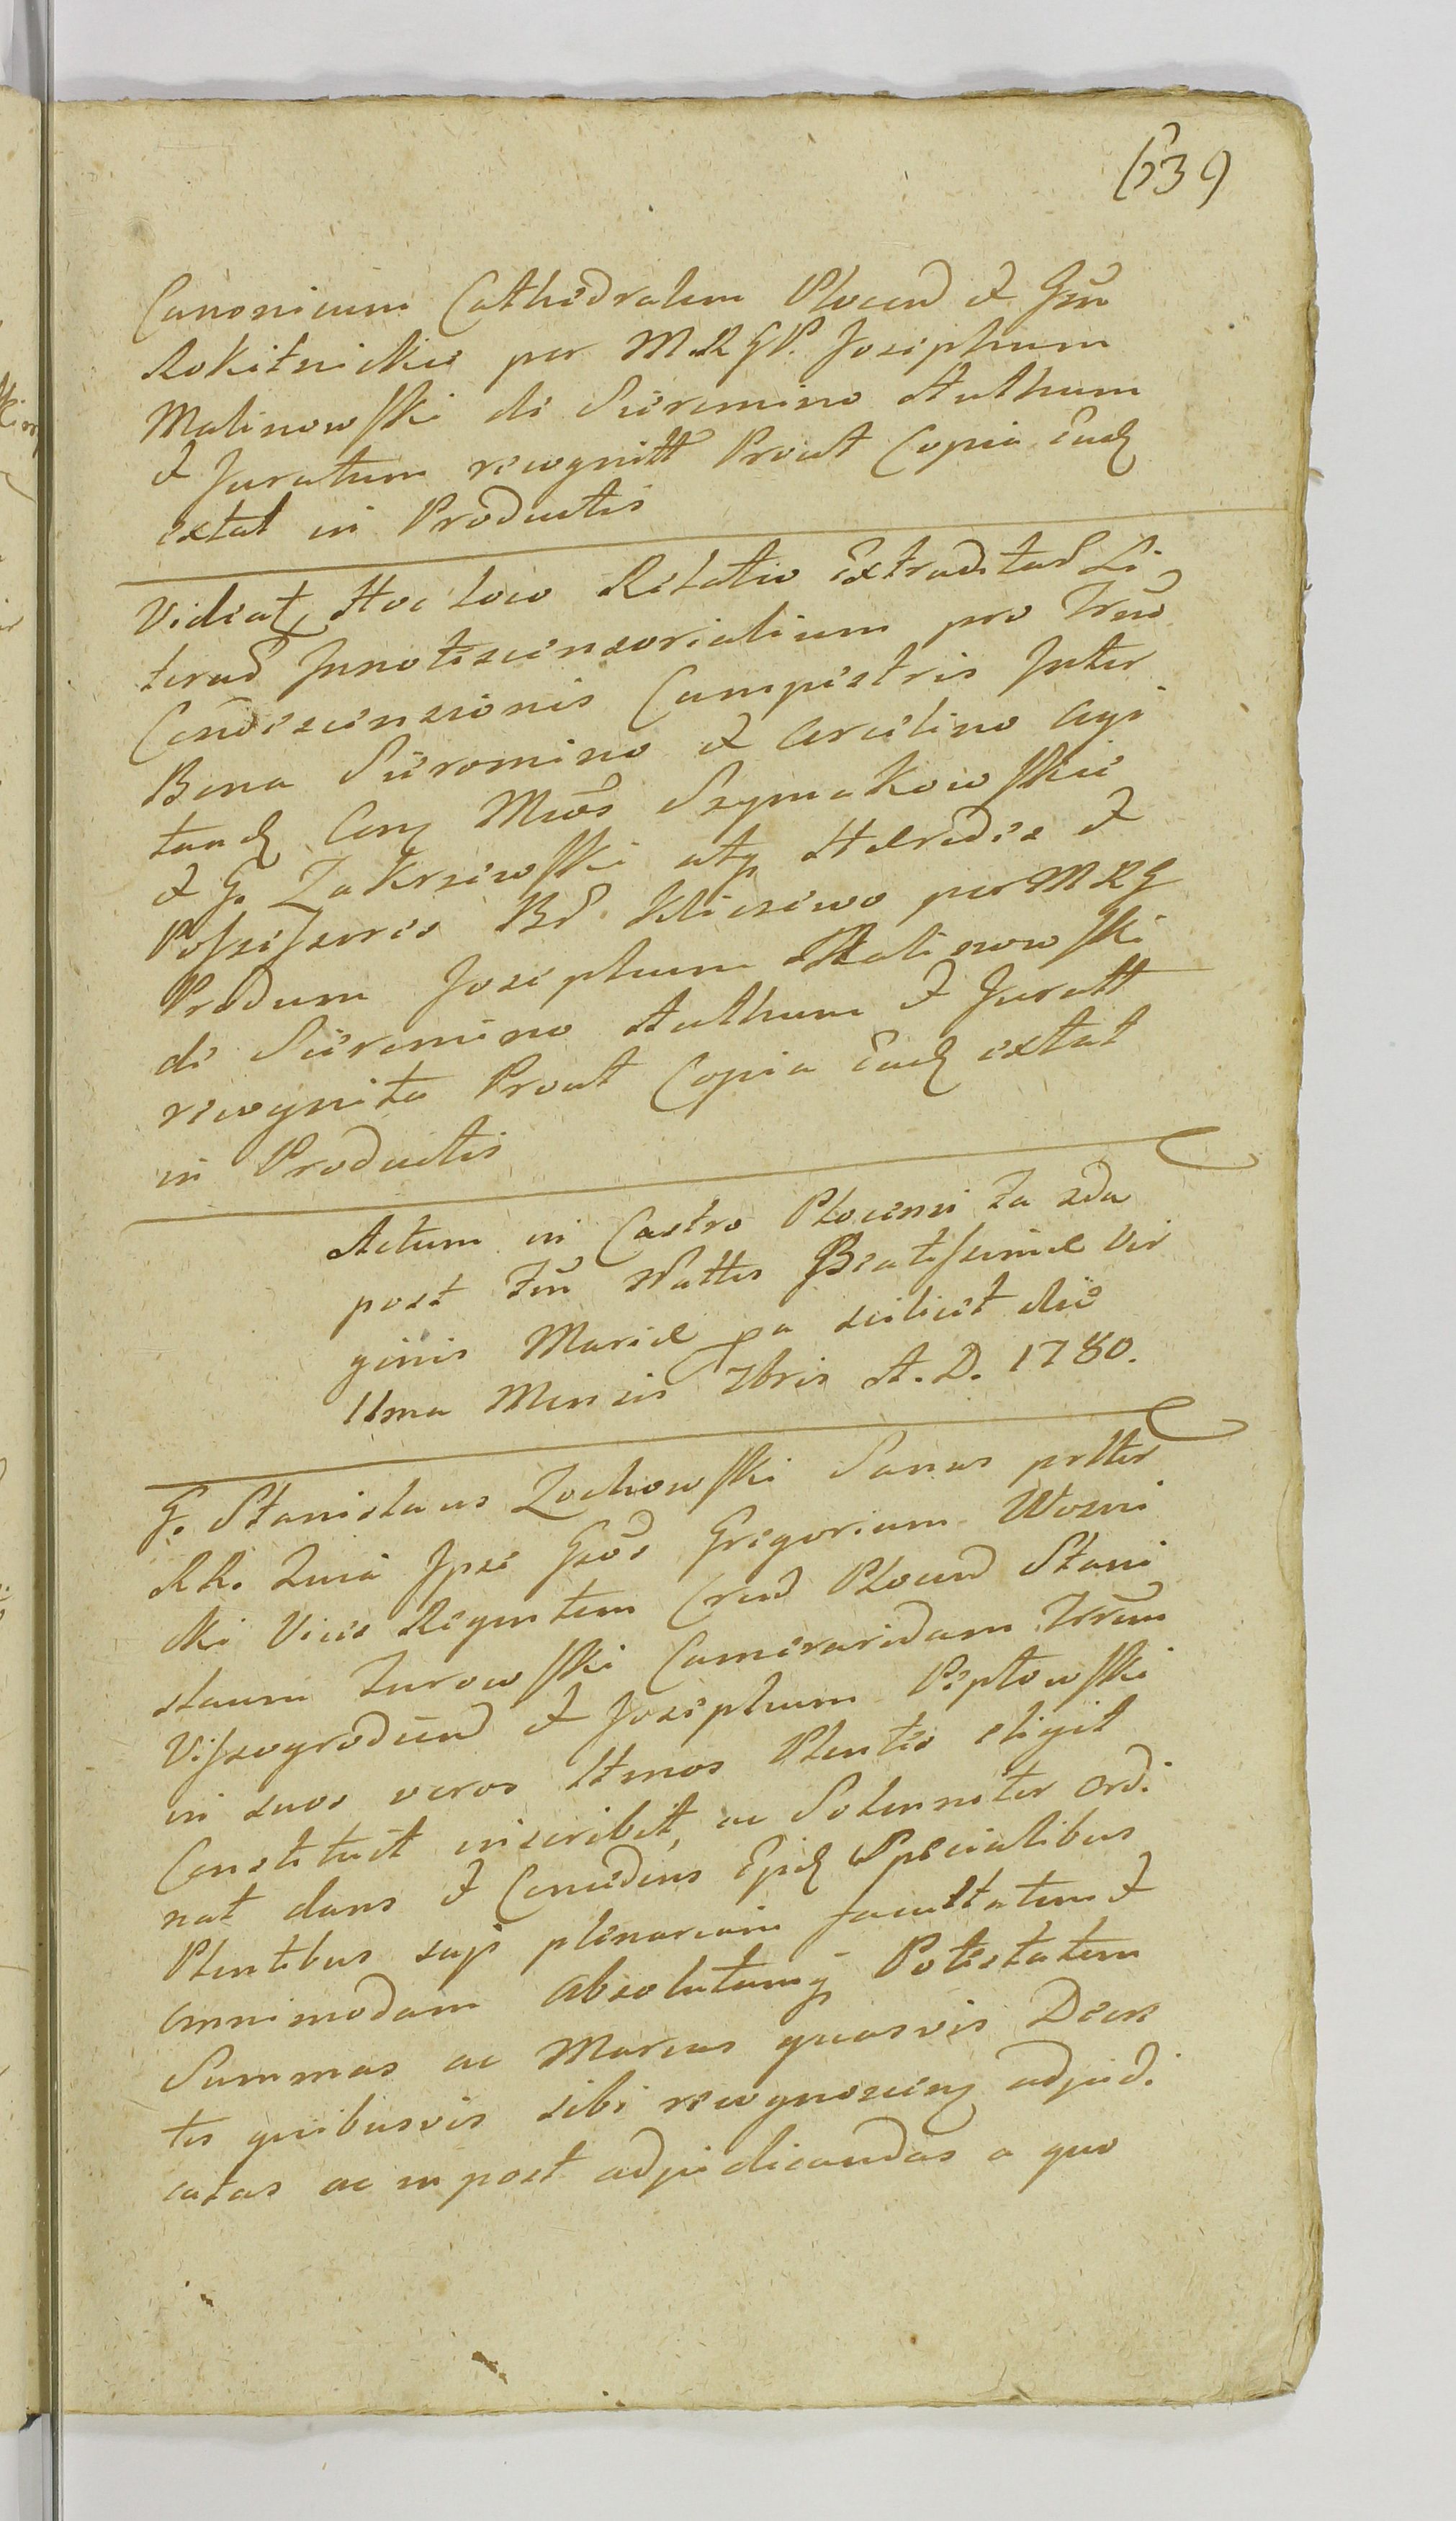 639
Canonicum Cathedralem Plocen & Gsm
Rokitnickie per M.R.G.P. Josephum
Malinowski de Sieromino Authum
& Juratum recognitt Prout Copia Ead
extat in Productis
Videat Hoc loco Relatio Extraditar Li
terar Innotescensorialium pro Trno
Condescensionis Campestris Inter
Bona Sieromino & Arcelino agi
tand Cong Mcos Szymakowskie
& G. Zakrzewski atq Haeredes &
Possessores Br Kliczewo per M R G
Produm Josephum Malinowski
de Sieromino Authum & Juratt
recognita Prout Copia Ead extat
in Productis
Actum in Castro Plocensi fa 2da
post Fm Nattis Beatissimae Vir
ginis Mariae pa scilicet die
11ma Mensis 7bris A. D. 1780.
G. Stanislaus Zochowski Sanus prtter
RR. Quia Ipse Gsos Gregorium Wozni
cki Vice Regentem Cren Plocen Stani
slaum Zurowski Cameraridam Trrum
Vissogroden & Josephum Peplowski
in suos veros Ltmos Plentes eligit
Constituit inscribit, ac Solenniter ordi
nat dans & Concedens Epid Specialibus
Plentibus suji plenariam facultatem &
omnimodam absolutamq Potestatem
Summas ac Marcas quasvis Decre
tis quibusvis sibi recognoscens adjudi
catas ac in post adjudicandas a quo